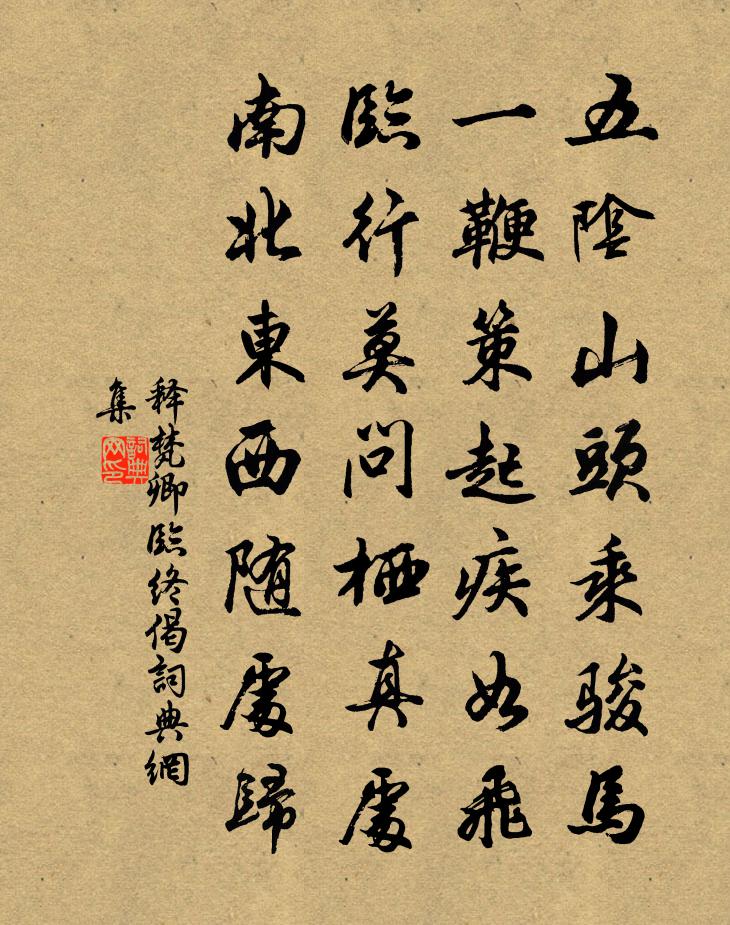 五陰山頭乘駿馬
一鞭策起疾如飛
臨行莫問栖真處
南北東西随處歸
释梵卿臨终偈詞典網
集
詞典
网印